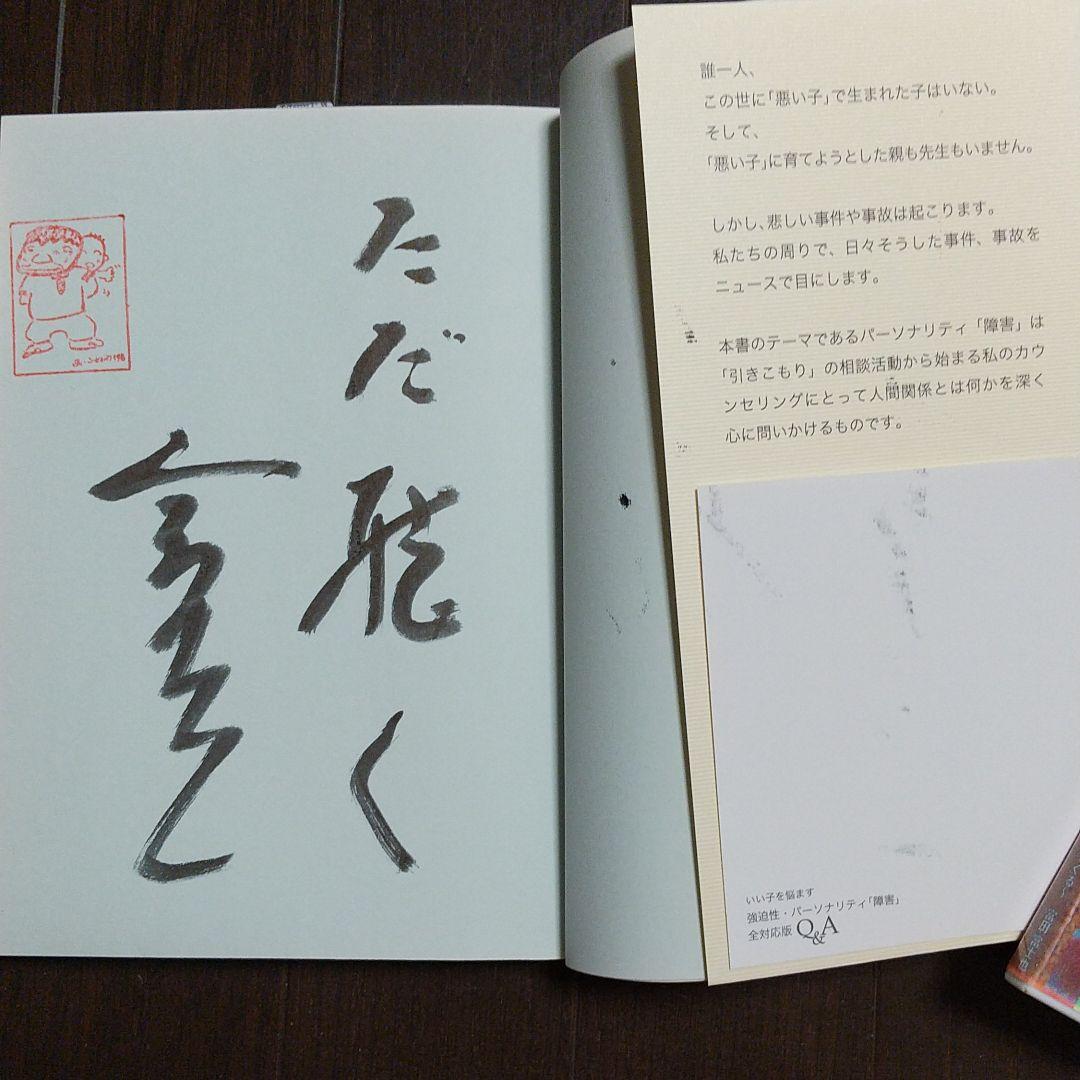 ただ聴く
誰一人、
この世に「悪い子」で生まれた子はいない。
そして、
「悪い子」に育てようとした親も先生もいません。
しかし、悲しい事件や事故は起こります。
私たちの周りで、日々そうした事件、事故を
ニュースで目にします。
本書のテーマであるパーソナリティ「障害」は
「引きこもり」の相談活動から始まる私のカウ
ンセリングにとって人間関係とは何かを深く
心に問いかけるものです。
いい子を悩ます
強迫性・パーソナリティ「障害」
全対応版 Q&A